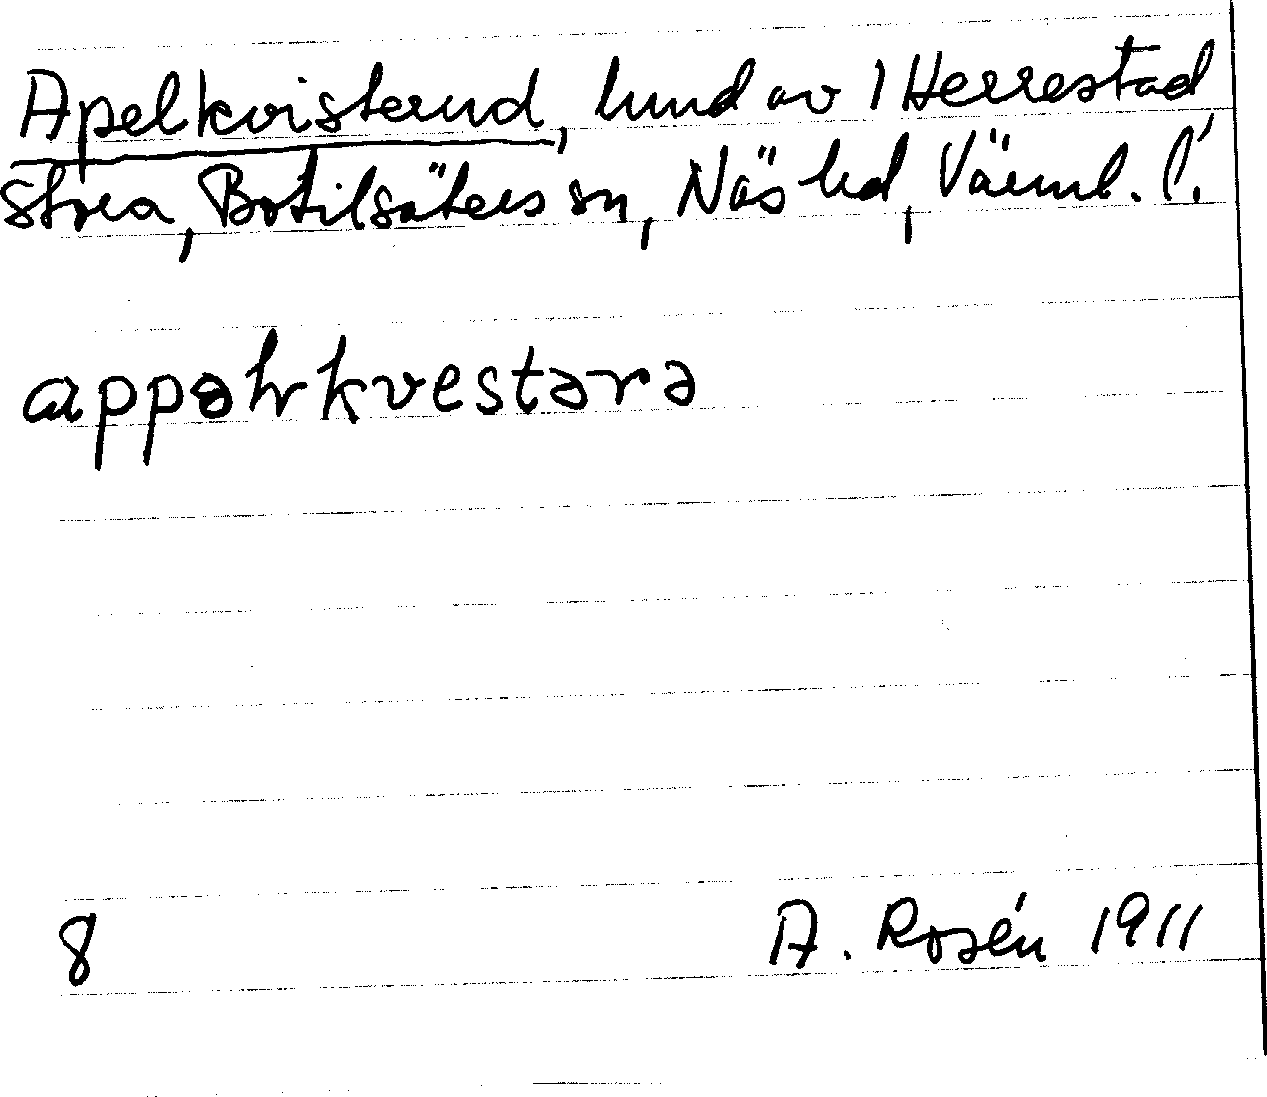 Apelkvisterud, lund av 1 Herrestad
stora, Botilsäters sn, Näs hd, Värml. l.
appəlrkvestərə
8 A. Rosén 1911